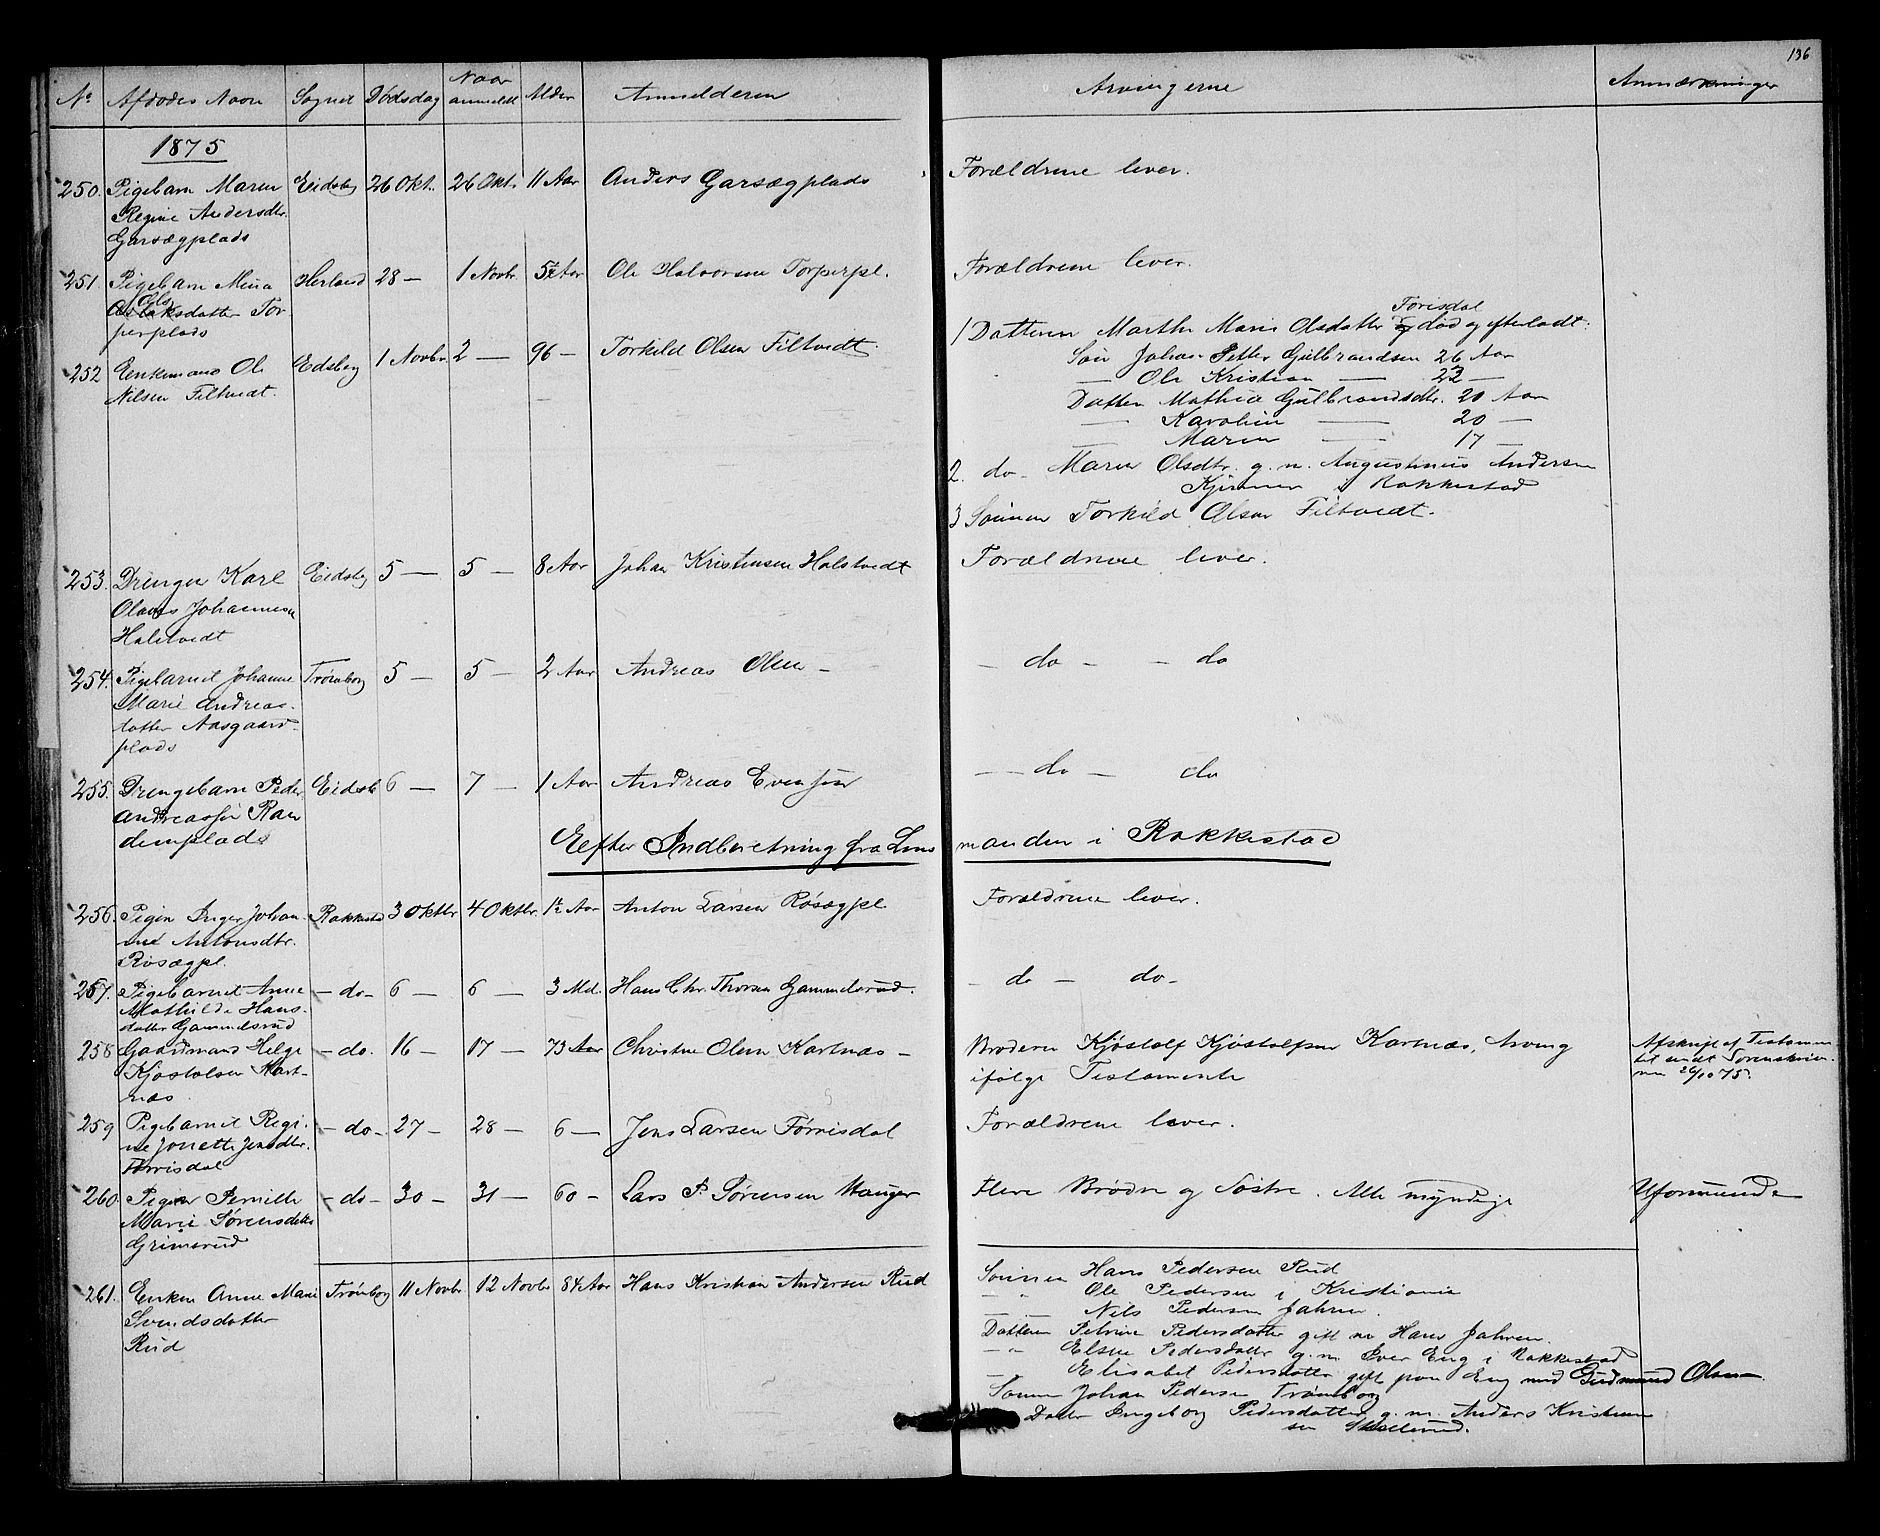 136
No Afdødes Navn Sognet Dødsdag Naar anmeldt Alder Anmelderen Arvingerne Anmærkninger
1875
250. Pigebarn Maren Eidsbg 26 Okt. 26 Okt. 11 Aar Anders Garsægplads Forældrene lever.
Regine Andersdtr.
Garsægplads
251. Pigebarn Mina Herland 28 — 1 Novbr. 5½ Aar Ole Halvorsen Torperpl. Forældrene lever.
Ols
datter Tor-
perplads
252 Enkemand Ole Eidsberg 1 Novbr. 2 — 96 — Torkild Olsen Filtvedt.
Nilsen Filtvedt.
Torisdal
1 Datteren Marthe Maris Olsdatter død og efterladt:
Søn Johan Petter Gulbrandsen 26 Aar
— Ole Kristian — 22 —
Datter Mathea Gulbrandsdtr. 20 Aar
— Karoline — 20 —
— Maren — 17 —
2. do. Maren Olsdtr. g. m. Augustinus Andersen
i Rakkestad
3 Sønnen Torkild Olsen Filtvedt.
253. Drengen Karl Eidsbg 5 — 5 — 8 Aar Johan Kristensen Halstvedt Forældrene lever.
Olaves Johannesen
Halstvedt
254. Pigebarnet Johanne Trømborg 5 — 5 — 2 Aar Andreas Olsen — — do — — do
Marie Andreas-
datter Aasgaard-
plads
255. Drengebarn Peder Eidsb 6 — 7 — 1 Aar Andreas Evensen — do — do
Andreassen Ran
demplads
Eefter Indberetning fra Lens manden i Rakkestad
256. Pigen Inger Johan Rakkestad 3 Oktbr. 4 Oktbr. 1½ Aar Anton Larsen Røsægpl. Forældrene lever.
ne Antonsdtr.
Røsægpl.
257. Pigebarnet Anne — do — 6 — 6 — 3 Md. Hans Chr. Thorsen Gammelsrud. — do — do —
Mathilde Hans-
datter Gammelsrud
258 Gaardmand Helge — do. 16 — 17 — 73 Aar Christine Olsen Kartnæs — Broderen Kjøstolf Kjøstolfsen Kartnæs, Arving Afskrift af Testamen
Kjøstolsen Kart- ifølge Testamente tet sendt Sorenskrive-
næs. ren 26/10 75.
259 Pigebarnet Regi- — do — 27 — 28 — 6 — Jens Larsen Tørrisdal Forældrene lever.
ne Jonette Jensdtr.
Tørrisdal
260 Pigen Pernille — do — 30 — 31 — 60 — Lars P. Sørensen Hauger Flere Brødre og Søstre. Alle myndige Uformuende
Marie Sørensdatter
Grimsrud
261. Enken Anne Marie Trømborg 11 Novbr. 12 Novbr. 84 Aar Hans Kristian Andersen Rud
Svendsdatter
Rud
Sønnen Hans Pedersen Rud
— " Ole Pedersen i Kristiania
— — Nils Pedersen Jahren.
Datteren Petrine Pedersdatter gift m Hans Jahren.
— " Elsine Pedersdatter g. m. Iver Eng i Rakkestad
— Elisabet Pedersdatter gift paa Eng med Gudmund Olsen
Sønnen Johan Pedersen Trømborg
Datter Ingeborg Pedersdatter g. m. Anders Kristian
sen